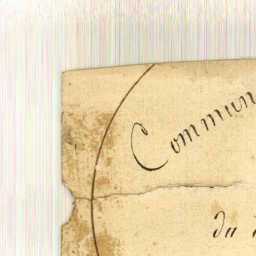 Commun
du